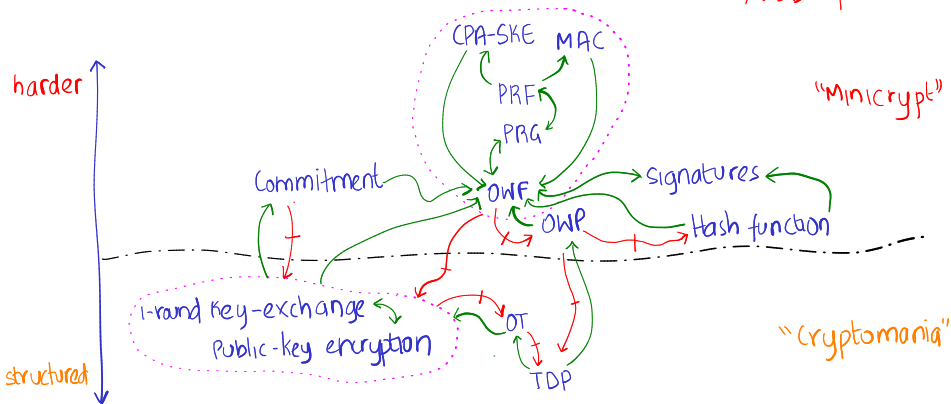 CPA-SKE MAC
harder
PRF
"Minicrypt"
PRG
Commitment
OWF
Signatures
OWP
Hash function
1-round key-exchange
OT
public-key encryption
"Cryptomania"
TDP
structured